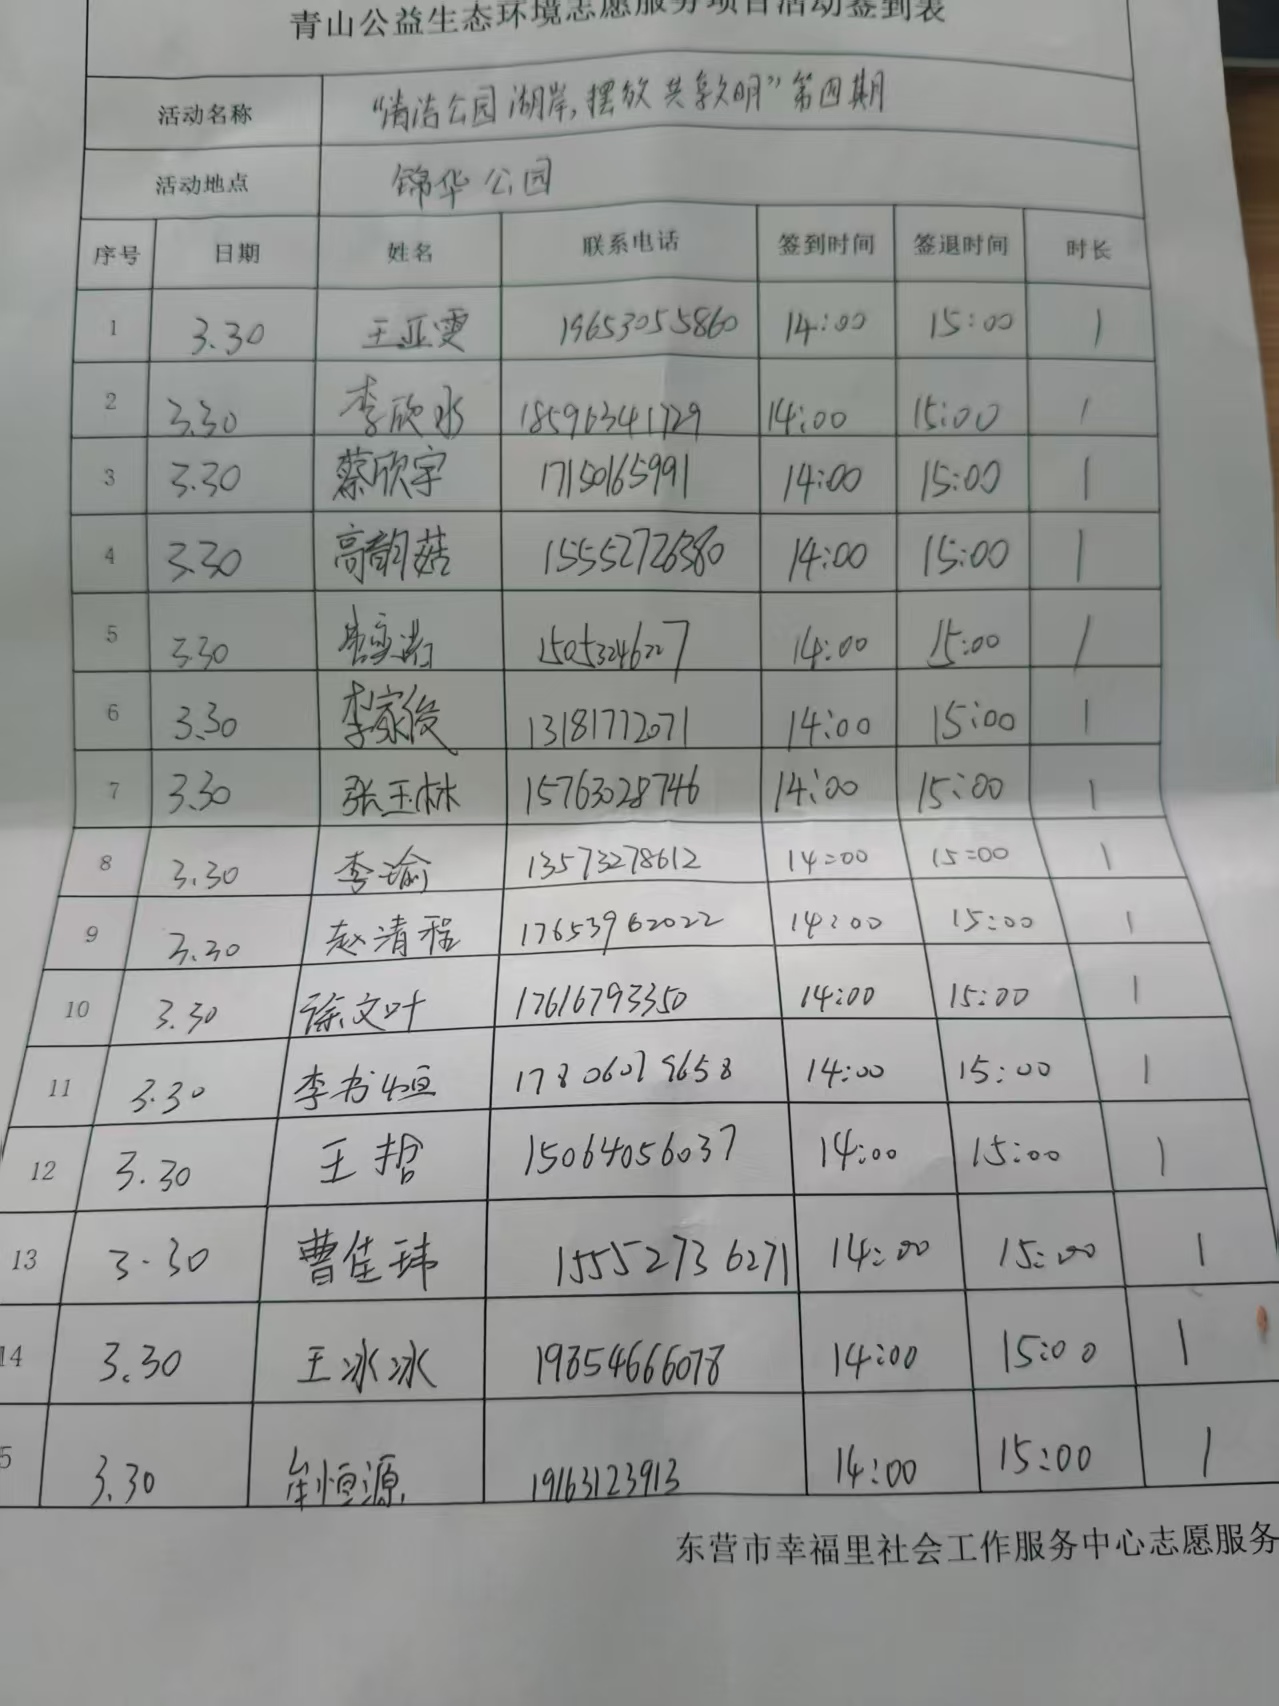 青山公益生态环境志愿服务项目活动签到表
活动名称 “清洁公园湖岸,摆放共享文明”第四期
活动地点 锦华公园
序号 日期 姓名 联系电话 签到时间 签退时间 时长
1 3.30 王亚雯 19653055860 14:00 15:00 1
2 3.30 李欣水 18596341729 14:00 15:00 1
3 3.30 蔡欣宇 17150165991 14:00 15:00 1
4 3.30 高韵菇 15552726380 14:00 15:00 1
5 3.30 15053246227 14:00 15:00 1
6 3.30 李家俊 13181772071 14:00 15:00 1
7 3.30 张玉林 15763028746 14:00 15:00 1
8 3.30 李瑜 13573278612 14:00 15:00 1
9 3.30 赵清程 17653962022 14:00 15:00 1
10 3.30 徐文叶 17616793350 14:00 15:00 1
11 3.30 李书恒 17806079658 14:00 15:00 1
12 3.30 王哲 15064056037 14:00 15:00 1
13 3.30 曹佳玮 15552736271 14:00 15:00 1
14 3.30 王冰冰 19854666078 14:00 15:00 1
5 3.30 牟恒源 19163123913 14:00 15:00 1
东营市幸福里社会工作服务中心志愿服务